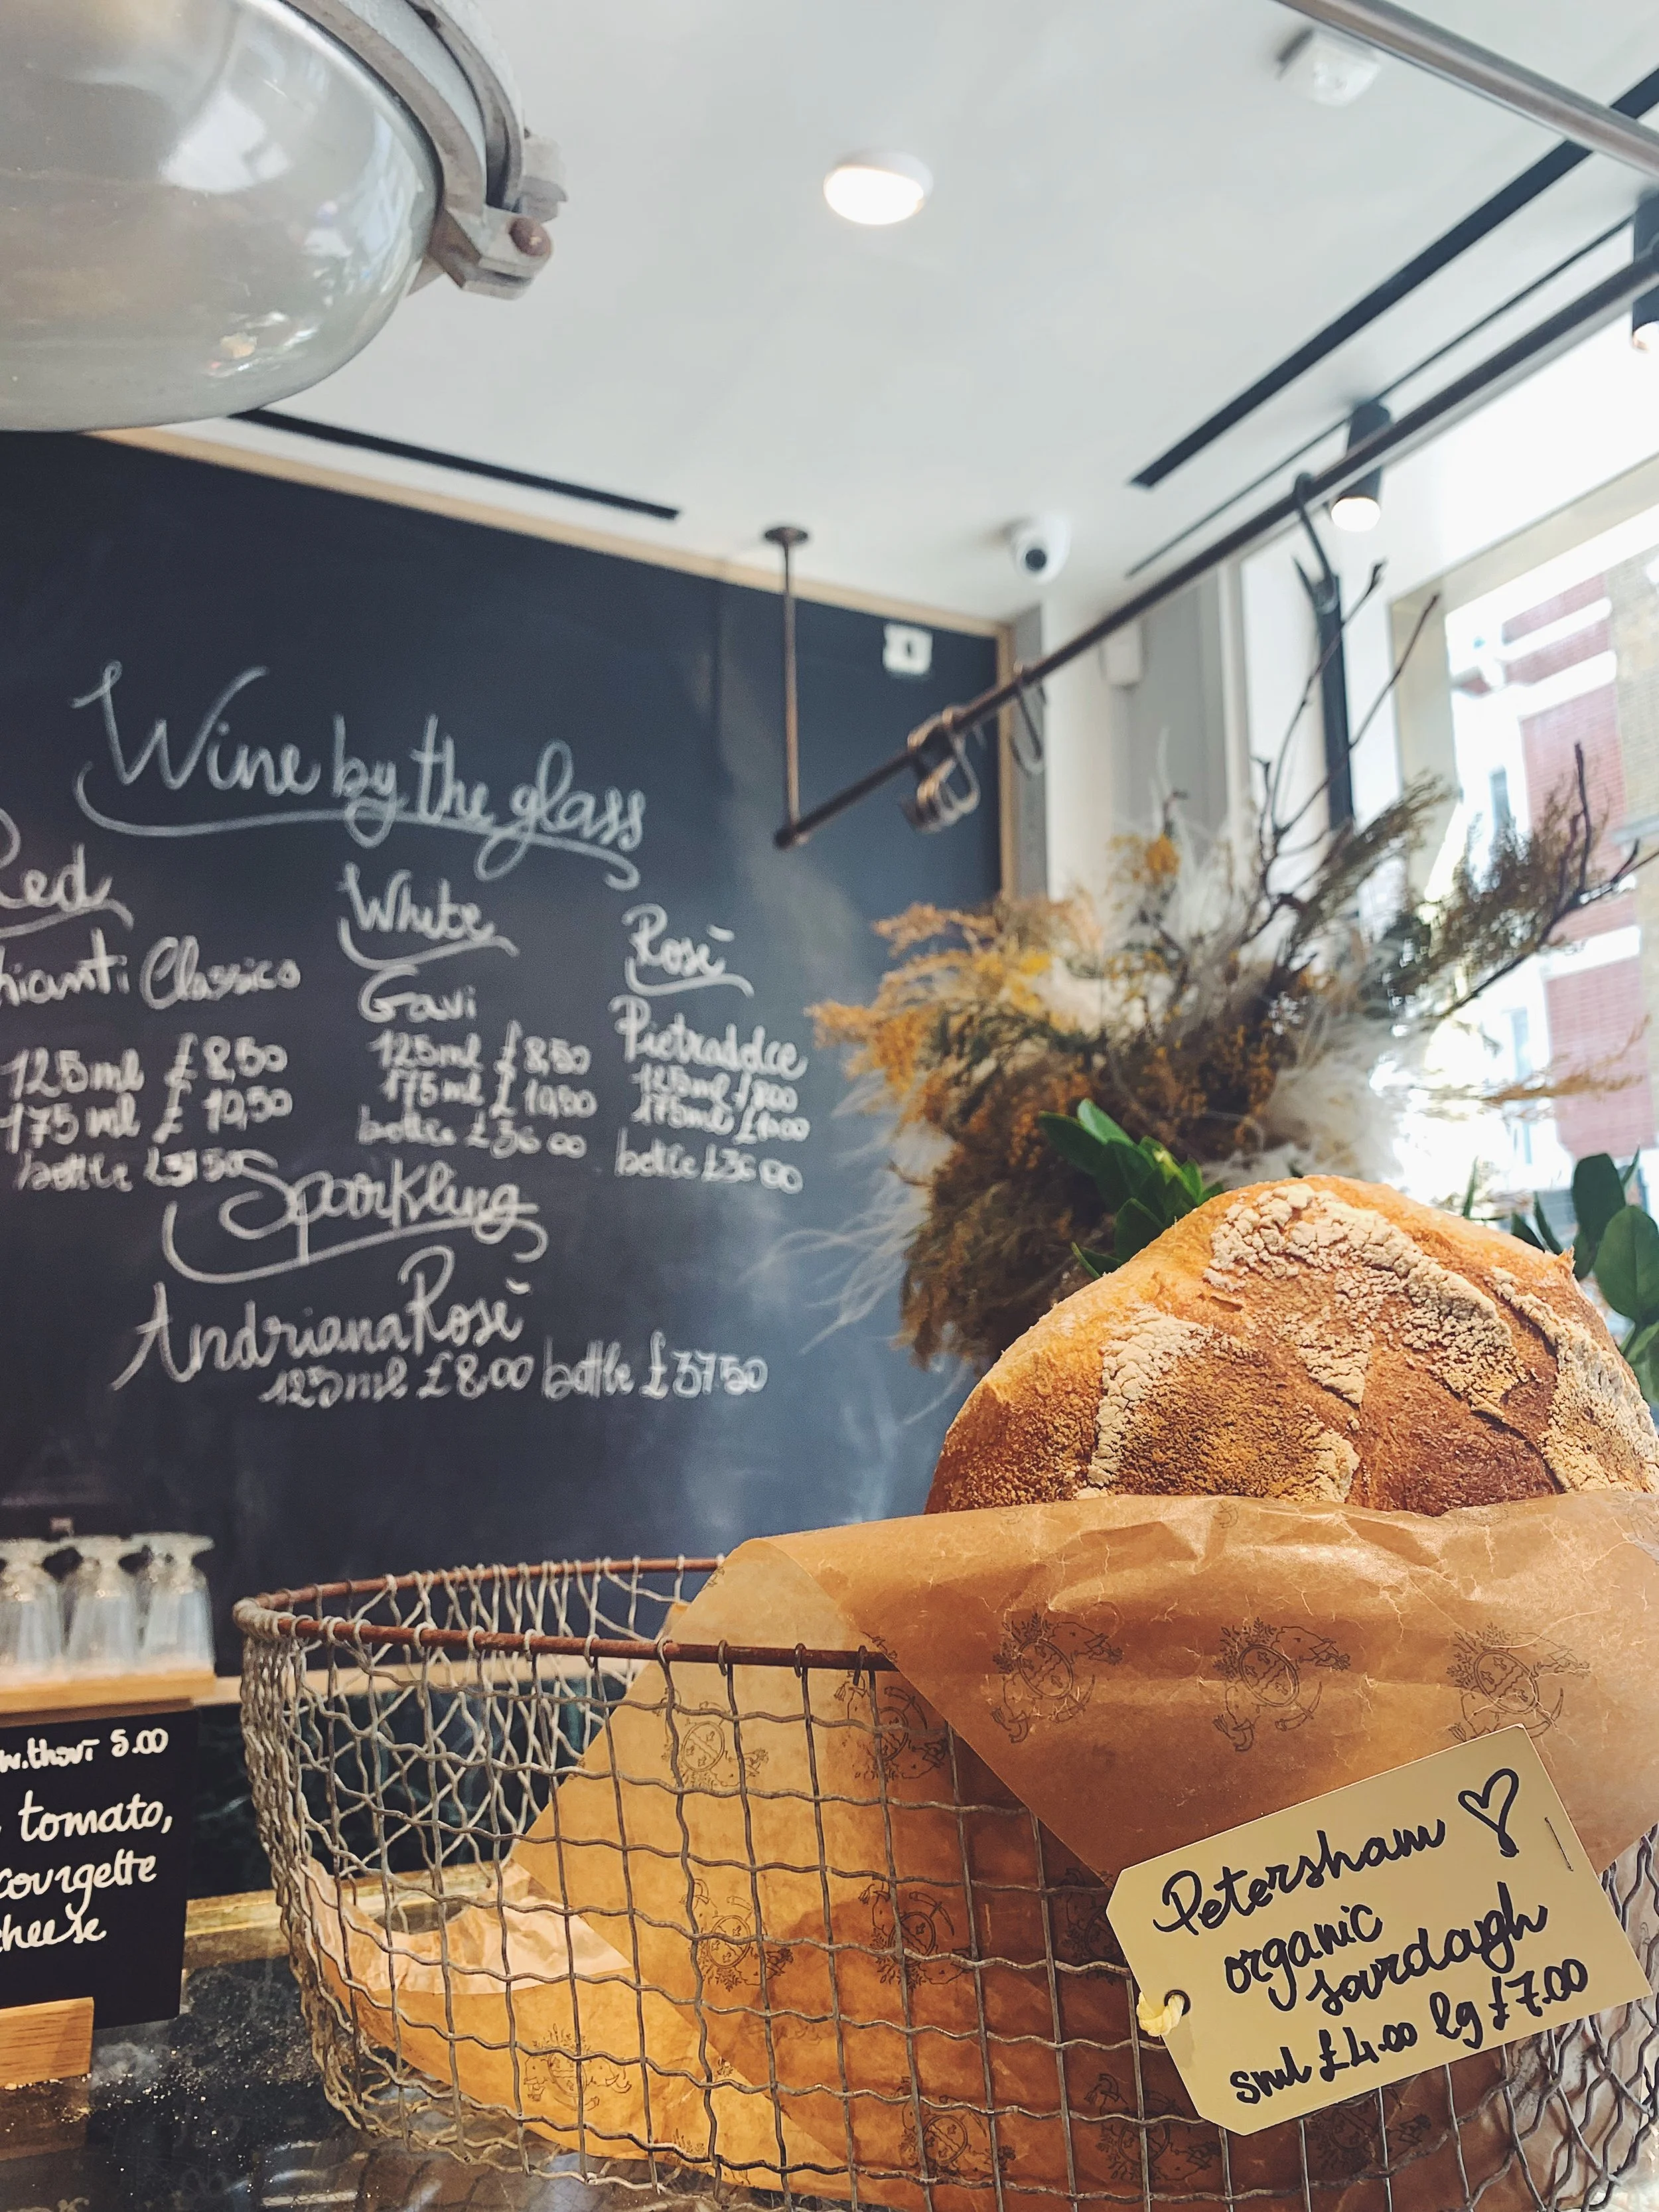 Wine by the glass
Red
Classico
125ml £8,50
175ml £10,50
bottle
White
Gavi
125ml £8,50
175ml £10,50
bottle £36 00
Rosé
125ml £800
175ml
bottle £36 00
Sparkling
Andriana Rosé
125ml £8.00 bottle £3750
5.00
tomato,
courgette
Petersham
organic
sourdough
sml £4.00 lg £7.00